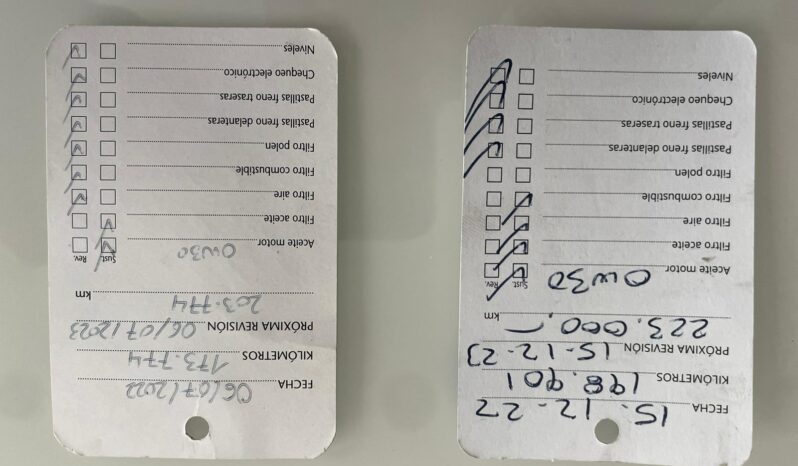 FECHA 15-12-22
KILÓMETROS 198.901
PRÓXIMA REVISIÓN 15-12-23
223.000,- km
Sust. Rev.
Aceite motor 0W30
Filtro aceite
Filtro aire
Filtro combustible
Filtro polen
Pastillas freno delanteras
Pastillas freno traseras
Chequeo electrónico
Niveles
FECHA 06/07/2022
KILÓMETROS 173-774
PRÓXIMA REVISIÓN 06/07/2023
203-774 km
Sust. Rev.
Aceite motor 0W30
Filtro aceite
Filtro aire
Filtro combustible
Filtro polen
Pastillas freno delanteras
Pastillas freno traseras
Chequeo electrónico
Niveles